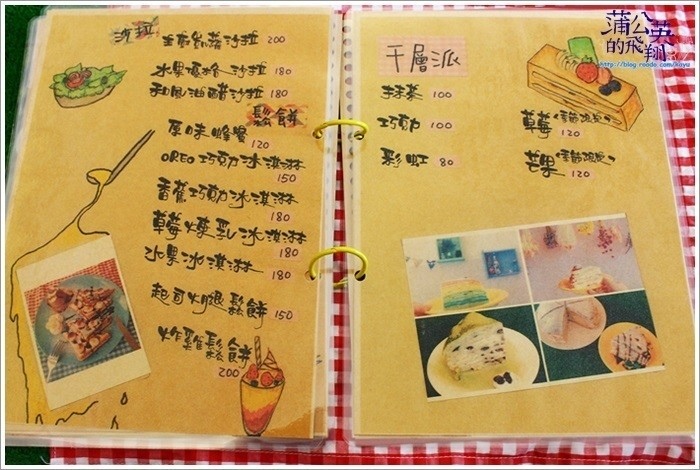 沙拉
全麥凱薩沙拉 200
水果優格沙拉 180
和風油醋沙拉 180
鬆餅
原味蜂蜜
120
OREO巧克力冰淇淋
150
香蕉巧克力冰淇淋
180
草莓煉乳冰淇淋
180
水果冰淇淋 180
起司火腿鬆餅 150
炸雞鬆餅
200
千層派
抹茶 100
巧克力 100
彩虹 80
草莓(季節限定)
120
芒果(季節限定)
120
蒲公英
的飛翔
http://blog.roodo.com/koyu